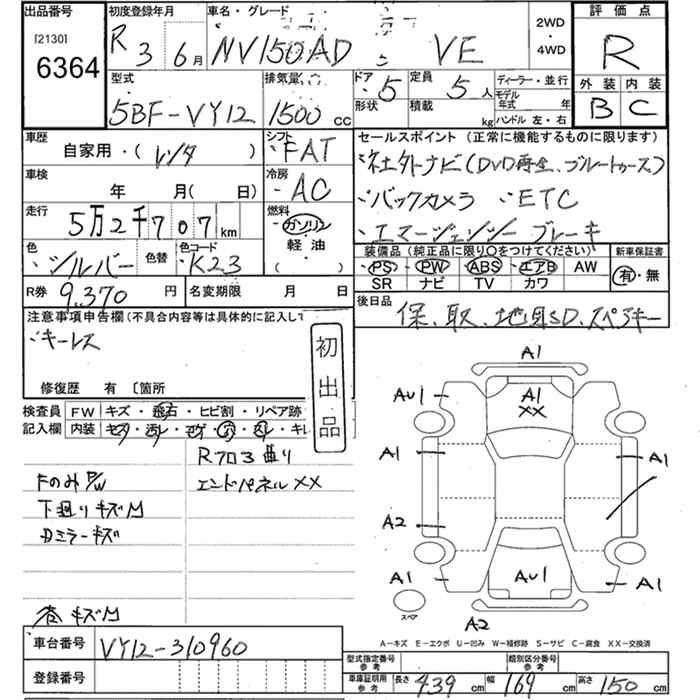 出品番号
[2130]
6364
初度登録年月
R 3 6月
車名・グレード
NV150AD VE
2WD
・
4WD
評価点
R
外装 内装
B C
型式
5BF-VY12
排気量
1500 cc
ドア 5
形状
定員 5人
積載 kg
ディーラー・並行
モデル年式 年
ハンドル 左・右
車歴
自家用・( レンタ )
シフト
FAT
車検
年 月( 日)
冷房
AC
走行
5万2千707km
燃料
ガソリン
( 軽油 )
色
シルバー
色替
色コード
K23
R券 9,370円
名変期限 月 日
セールスポイント (正常に機能するものに限ります)
・社外ナビ(DVD再生、ブルートゥース)
・バックカメラ ・ETC
・エマージェンシーブレーキ
装備品(純正品に限り○をつけてください)
PS PW ABS エアB AW
SR ナビ TV カワ
新車保証書
有・無
後日品
保、取、地図SD、スペアキー
注意事項申告欄(不具合内容等は具体的に記入して
・キーレス
修復歴 有 〔箇所
初出品
検査員
記入欄
FW キズ・飛石・ヒビ割・リペア跡
内装 キズ・汚レ・コゲ・穴・スレ・キレ
Rフロア曲り
FのみP/W
エンドパネルXX
下廻りキズM
ミラーキズ
キズM
A1
AU1
A1
XX
A1
A1
A2
A1
AU1
A1
スペア
A2
A－キズ E－エクボ U－凹み W－補修跡 S－サビ C－腐食 XX－交換済
車台番号
VY12-310960
登録番号
型式指定番号
参考
類別区分番号
参考
車庫証明用
参考
長さ 439cm 幅 169cm 高さ 150cm